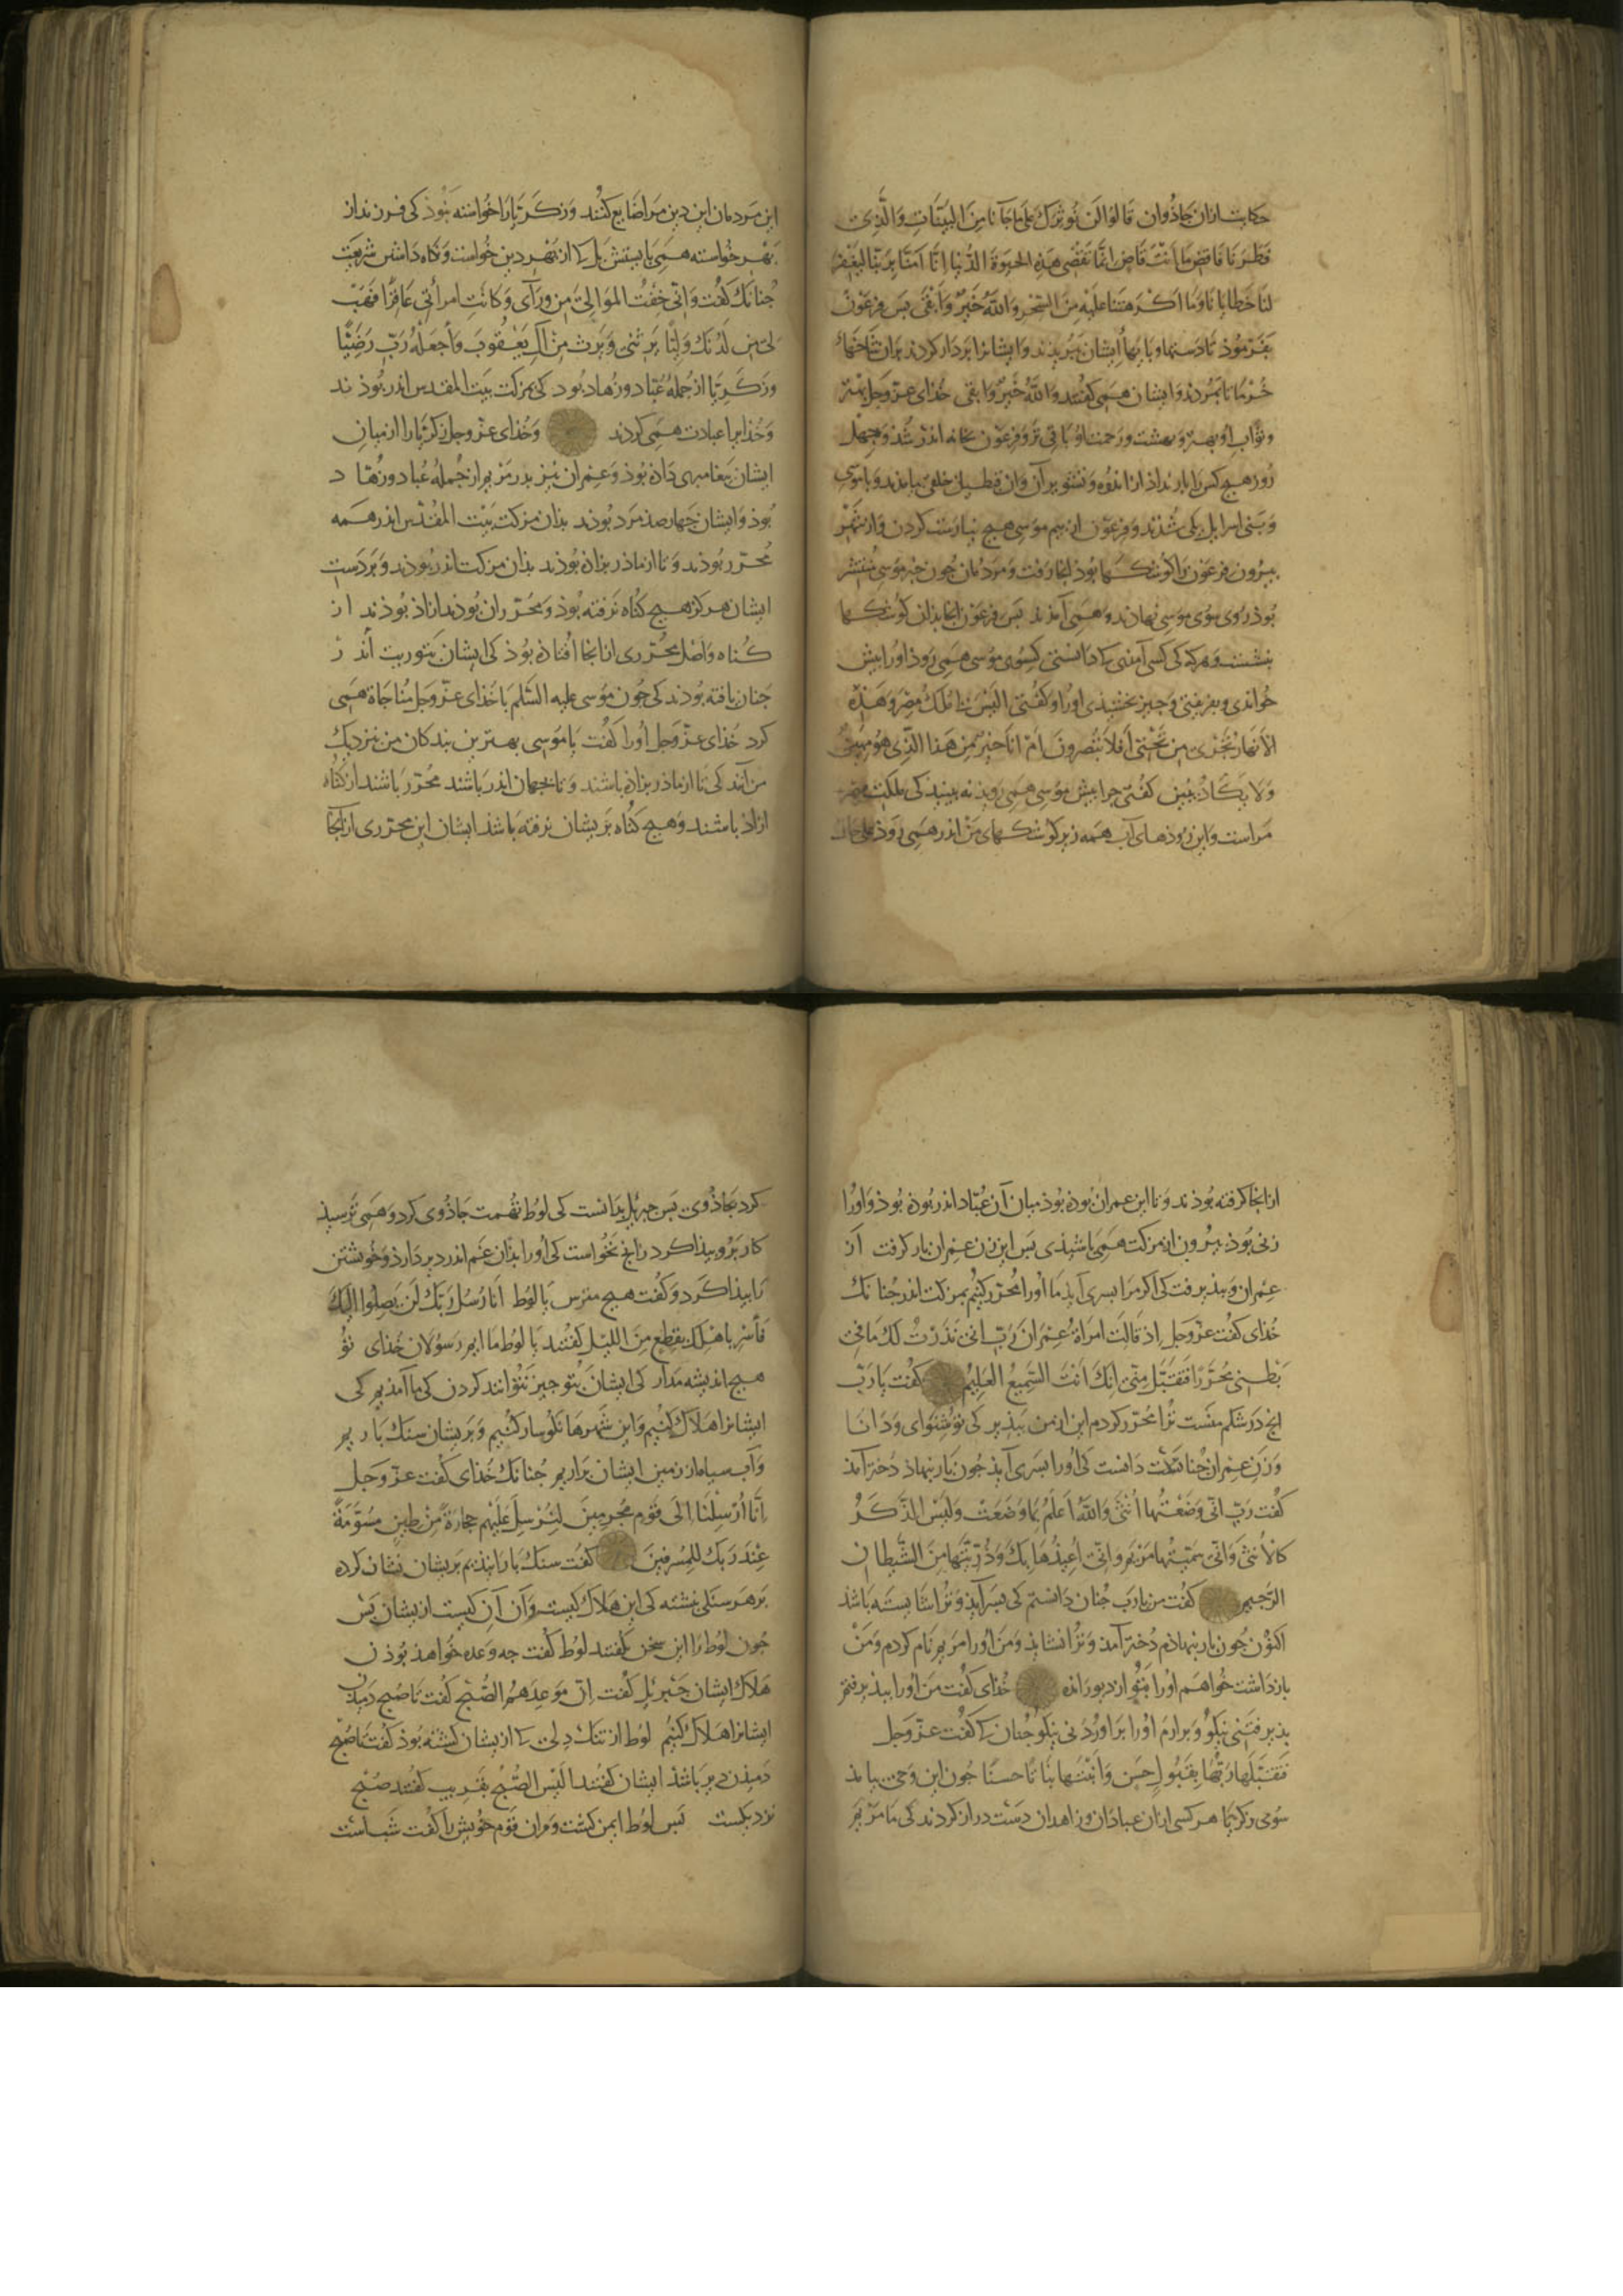 حکایت ازان جاذوان قالوا لن نوثرک علی ما جآنا من البینات والذی
فطرنا فاقض ما انت قاض انما تقضی هذه الحیوة الدنیا انا امنا بربنا لیغفر
لنا خطایانا وما اکرهتنا علیه من السحر والله خیر وابقی بس فرعون
بفرموذ تا دستها و بایها ایشان ببریدند و ایشانرا بردار کردند بران شاخهاء
خرما تا بمردند و ایشان همی کفتند والله خیر وابقی خذای عز وجل بهتر
و ثواب او بهتر و بهشت و رحمت او باقی تر و فرعون بخانه اندر شذ و جهل
روز هیج کس را بار نداذ ازا اندوه و تشویر آن وان قبطیان خلقی بیامدند و با موسی
و بنی اسرایل یکی شذند و فرعون از بیم موسی هیج نیارست کردن و از شهر
بیرون فرعون را کوشکها بوذ انجا رفت و مردمان جون خبر موسی منتشر
بوذ روی سوی موسی نهادند و همی آمدند بس فرعون انجا بذان کوشکها
بنشست و هرکه کی کسی آمذی کی دانستی کی سوی موسی همی روذ اورا بیش
خواندی و بفریفتی و جیز بخشیذی اورا و کفتی الیس لی ملک مصر وهذه
الانهار تجری من تحتی افلا تبصرون ام انا خیر من هذا الذی هو مهین
ولا یکاد یبین کفتی جرا بیش موسی همی روید نه بینید کی ملکت مصر
مراست و این روذهای آب همه زیر کوشکهای من اندر همی روذ
این مردمان این دین مرا ضایع کنند و زکریا را خواسته نبوذ کی فرزند از
بهر خواسته همی بایستش بل کی از بهر دین خواست و نکاه داشتن شریعت
جنانک کفت وانی خفت الموالی من ورآی وکانت امراتی عاقرا فهب
لی من لدنک ولیا یرثنی ویرث من آل یعقوب واجعله رب رضیا
و زکریا از جمله عباد و زهاد بود کی بمزکت بیت المقدس اندر بوذند
و خذایرا عبادت همی کردند و خذای عز وجل زکریا را از میان
ایشان بیغامبری داذه بوذ و عمران نیز بدر مریم از جمله عباد و زهاد
بوذ و ایشان جهارصذ مرد بوذند بذان مزکت بیت المقدس اندر همه
محرر بوذند و تا از ماذر بزاذه بوذند بذان مزکت اندر بوذند و بر دست
ایشان هرکز هیج کناه نرفته بوذ و محرران بوذند ازاذ بوذند از
کناه و اصل محرری از انجا افتاذه بوذ کی ایشان بتوریت اندر
جنان یافته بوذند کی جون موسی علیه السلم با خذای عز وجل مناجاة همی
کرد خذای عز وجل اورا کفت یا موسی بهترین بندکان من نزدیک
من آنند کی تا از ماذر بزاذه باشند و تا بجهان اندر باشند محرر باشند از کناه
ازاذ باشند و هیج کناه بریشان نرفته باشذ ایشان این محرری از انجا
ازانجا کرفته بوذند و تا این عمران بوذه بوذ میان آن عباد اندر بوذه بوذ و اورا
زنی بوذ بیرون از مزکت همی باشیذی بس این زن عمران بار کرفت از
عمران و بذیرفت کی اکر مرا بسری آیذ ما اورا محرر کنیم بمزکت اندر جنانک
خذای کفت عز وجل اذ قالت امراة عمران رب انی نذرت لک ما فی
بطنی محررا فتقبل منی انک انت السمیع العلیم کفت یا رب
انج در شکم منست ترا محرر کردم این از من ببذیر کی تو شنوای و دانا
و زن عمران جنان دانست کی اورا بسری آیذ جون بار بنهاذ دختر آمذ
کفت رب انی وضعتها انثی والله اعلم بما وضعت ولیس الذکر
کالانثی وانی سمیتها مریم وانی اعیذها بک وذریتها من الشیطان
الرجیم کفت من یا رب جنان دانستم کی بسر آیذ و ترا شایسته باشذ
اکنون جون بار بنهاذم دختر آمذ و ترا نشایذ و من اورا مریم نام کردم و من
بازداشت خواهم اورا بتو از دیو رانده خذای کفت من اورا ببذیرفتم
بذیرفتنی نیکو و برارم اورا براوردنی نیکو جنان کی کفت عز وجل
فتقبلها ربها بقبول حسن وانبتها نباتا حسنا جون این وحی بیامذ
سوی زکریا هر کسی ازان عبادان و زاهدان دست دراز کردند کی ما مریم
کرد بجاذوی بس جبریل بدانست کی لوط تهمت جاذوی کرد و همی ترسیذ
کار برو بیذا کرد زانج نخواست کی اورا بذان غم اندر دیر دارذ و خویشتن
را بیذا کرد و کفت هیج مترس یا لوط انا رسل ربک لن یصلوا الیک
فاسر باهلک بقطع من اللیل کفتند یا لوط ما ایم رسولان خذای تو
هیج اندیشه مدار کی ایشان بتو جیز نتوانند کردن کی ما آمذیم کی
ایشانرا هلاک کنیم و این شهرها نکوسار کنیم و بریشان سنک باریم
و آب سیاه از زمین ایشان براریم جنانک خذای کفت عز وجل
انا ارسلنا الی قوم مجرمین لنرسل علیهم حجارة من طین مسومة
عند ربک للمسرفین کفت سنک بارانیذیم بریشان نشان کرده
بر هر سنکی نبشته کی این هلاک کیست و آن آن کیست ازیشان بس
جون لوط را این سخن بکفتند لوط کفت جه وعده خواهذ بوذن
هلاک ایشان جبریل کفت ان موعدهم الصبح کفت تا صبح دمیذن
ایشانرا هلاک کنیم لوط از تنک دلی کی ازیشان کشته بوذ کفت تا صبح
دمیذن دیر باشذ ایشان کفتند الیس الصبح بقریب کفتند صبح
نزدیکست بس لوط ایمن کشت و مران قوم خویش را کفت شب است